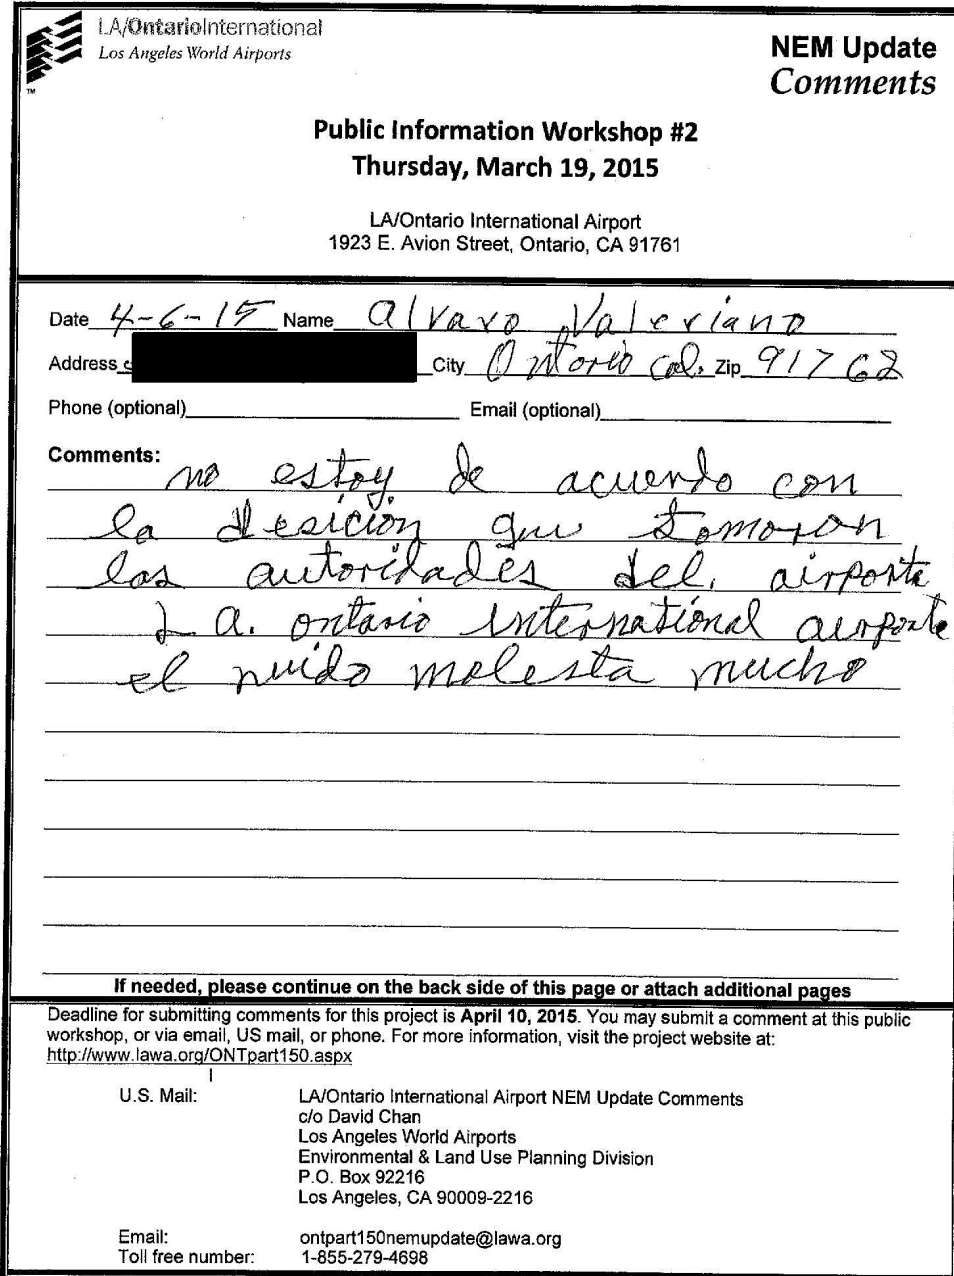 LA/OntarioInternational
Los Angeles World Airports
TM
NEM Update
Comments
Public Information Workshop #2
Thursday, March 19, 2015
LA/Ontario International Airport
1923 E. Avion Street, Ontario, CA 91761
Date 4-6-15 Name Alvaro Valeriano
Address City Ontorio Cal. Zip 91762
Phone (optional) Email (optional)
Comments:
no estoy de acuerdo con
la desición que tomoron
las autoridades del. airporte
L a. ontario international airporte
el ruido molesta mucho
If needed, please continue on the back side of this page or attach additional pages
Deadline for submitting comments for this project is April 10, 2015. You may submit a comment at this public
workshop, or via email, US mail, or phone. For more information, visit the project website at:
http://www.lawa.org/ONTpart150.aspx
U.S. Mail: LA/Ontario International Airport NEM Update Comments
c/o David Chan
Los Angeles World Airports
Environmental & Land Use Planning Division
P.O. Box 92216
Los Angeles, CA 90009-2216
Email: ontpart150nemupdate@lawa.org
Toll free number: 1-855-279-4698